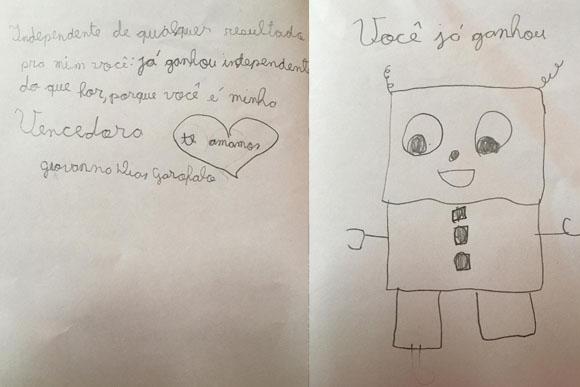 Independente de qualquer resultado
pra mim você: já ganhou independent
do que for, porque você é minha
Vencedora
te amamos
giovanna Dias Garofalo
Você já ganhou